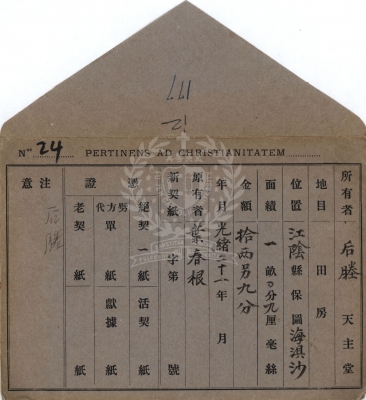 111
12
Nº 24 PERTINENS AD CHRISTIANITATEM
所有者 后塍 天主堂
地目 田房
位置 江陰縣保圖海濱沙
面積 一畝 分九厘毫絲
金額 拾兩另九分
年月 光緒二十一年 月
原有者 葉春根
新契紙 字第 號
憑證
絕契 一 紙 活契 紙
劣方代單 紙 獻據 紙
老契 紙 紙
注意
后塍